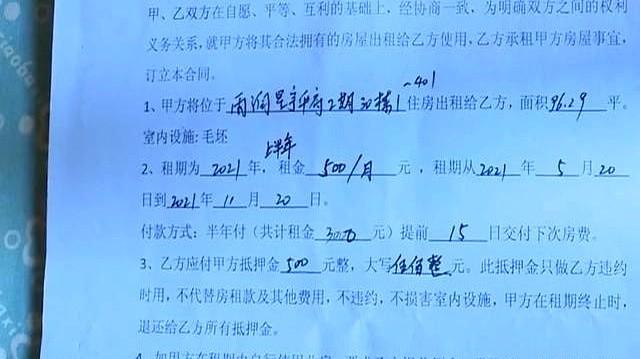 甲、乙双方在自愿、平等、互利的基础上，经协商一致，为明确双方之间的权利
义务关系，就甲方将其合法拥有的房屋出租给乙方使用，乙方承租甲方房屋事宜，
订立本合同。
-401
1、甲方将位于 2期 住房出租给乙方，面积96.29平。
室内设施：毛坯
上半年
2、租期为 2021 年，租金 500/月 元，租期从2021 年 5 月 20
日到2021年 11 月 20 日。
付款方式：半年付（共计租金 3000 元）提前 15 日交付下次房费。
3、乙方应付甲方抵押金 500 元整，大写伍佰整元。此抵押金只做乙方违约
时用，不代替房租款及其他费用，不违约，不损害室内设施，甲方在租期终止时，
退还给乙方所有抵押金。